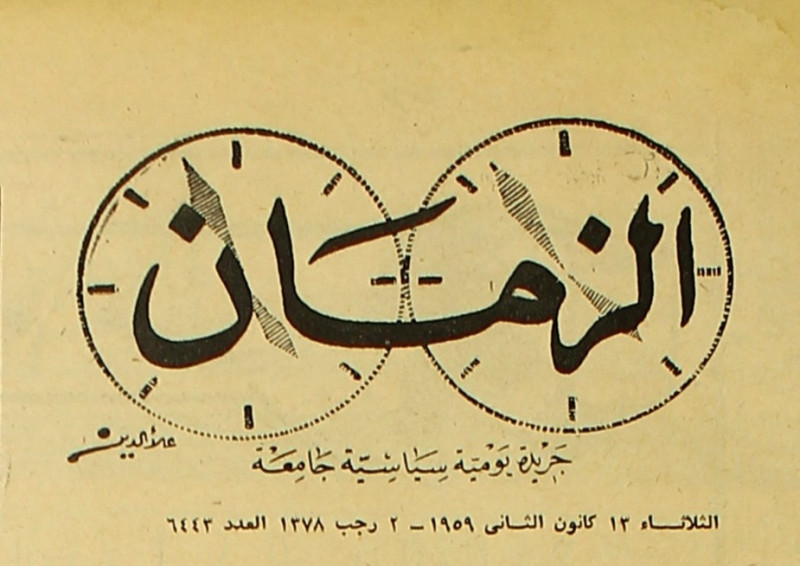 الزمان
علاءالدين
جَرِيْدة يَوْمَيّة سِيَاسِيّة جَامِعَة
الثلاثـــاء ١٣ كانون الثانى ١٩٥٩ – ٢ رجب ١٣٧٨ العدد ٦٤٤٣